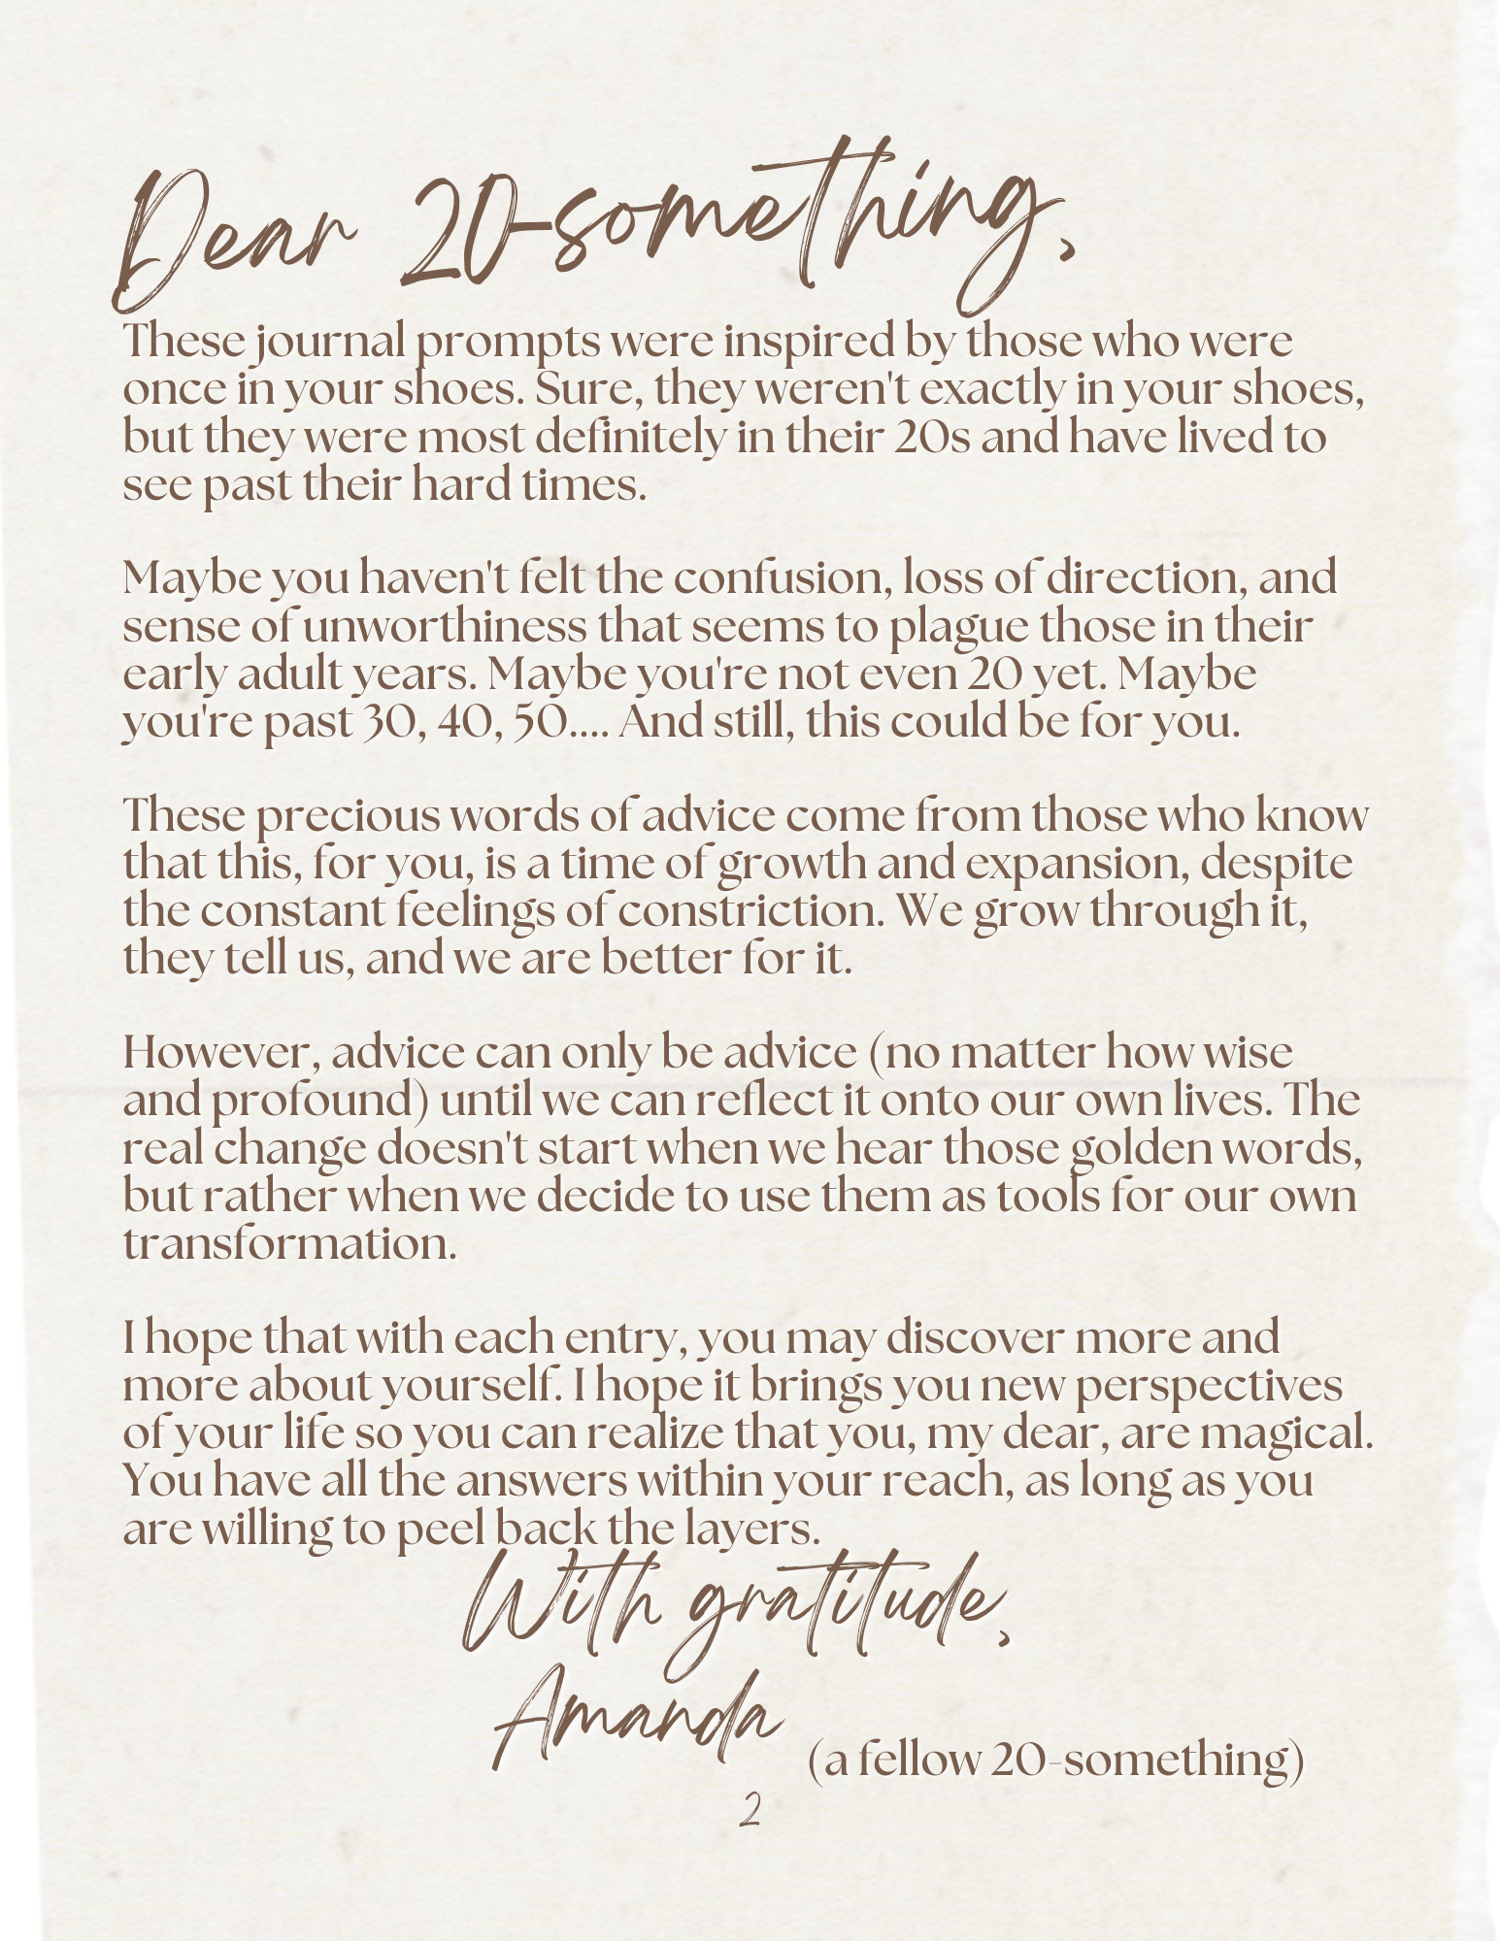 Dear 20-something,
These journal prompts were inspired by those who were
once in your shoes. Sure, they weren't exactly in your shoes,
but they were most definitely in their 20s and have lived to
see past their hard times.
Maybe you haven't felt the confusion, loss of direction, and
sense of unworthiness that seems to plague those in their
early adult years. Maybe you're not even 20 yet. Maybe
you're past 30, 40, 50.... And still, this could be for you.
These precious words of advice come from those who know
that this, for you, is a time of growth and expansion, despite
the constant feelings of constriction. We grow through it,
they tell us, and we are better for it.
However, advice can only be advice (no matter how wise
and profound) until we can reflect it onto our own lives. The
real change doesn't start when we hear those golden words,
but rather when we decide to use them as tools for our own
transformation.
I hope that with each entry, you may discover more and
more about yourself. I hope it brings you new perspectives
of your life so you can realize that you, my dear, are magical.
You have all the answers within your reach, as long as you
are willing to peel back the layers.
With gratitude,
Amanda (a fellow 20-something)
2